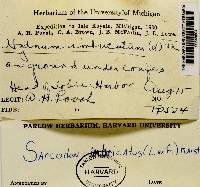 Herbarium of the University of Michigan
Expedition to Isle Royale, Michigan, 1930
A. H. Povah, C. A. Brown, J. B. McFarlin, J. L. Lowe
Hydnum imbricatum
on ground under conifers
Head Tobin Harbor Aug 15
LEGIT: W. H. Povah NO.
FIDE:
FARLOW HERBARIUM, HARVARD UNIVERSITY
Sarcodon imbricatus
Annotated
HARVARD
UNIVERSITY